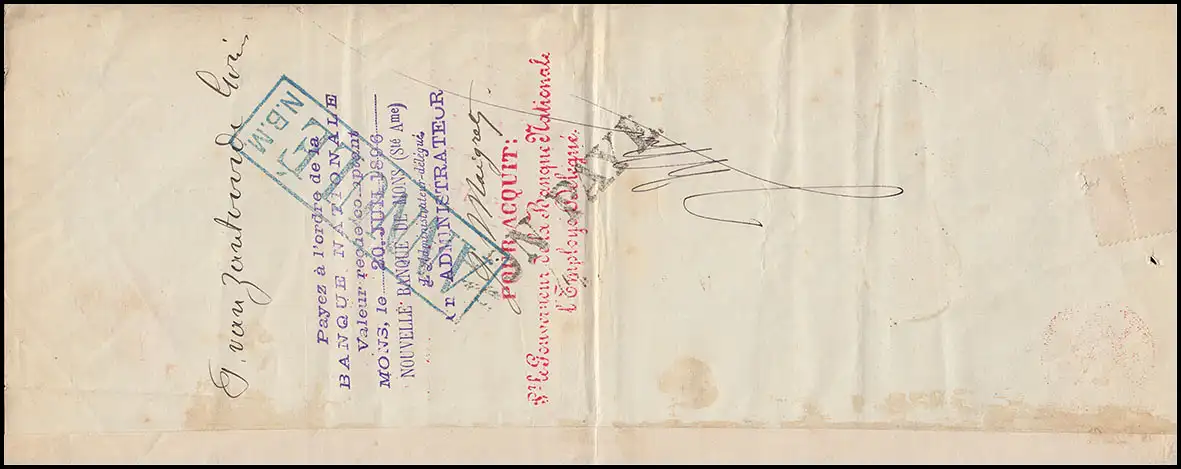 G. van Zantvoorde
Payez à l'ordre de la
BANQUE NATIONALE
Valeur reçue comptant
MONS, le 20 JUIL 1896
NOUVELLE BANQUE DE MONS (Sté Ame)
L'Administrateur-délégué
Un ADMINISTRATEUR
N.B.M
POUR ACQUIT:
Pr le Gouverneur de la Banque Nationale
l'Employé délégué,
PAYÉ